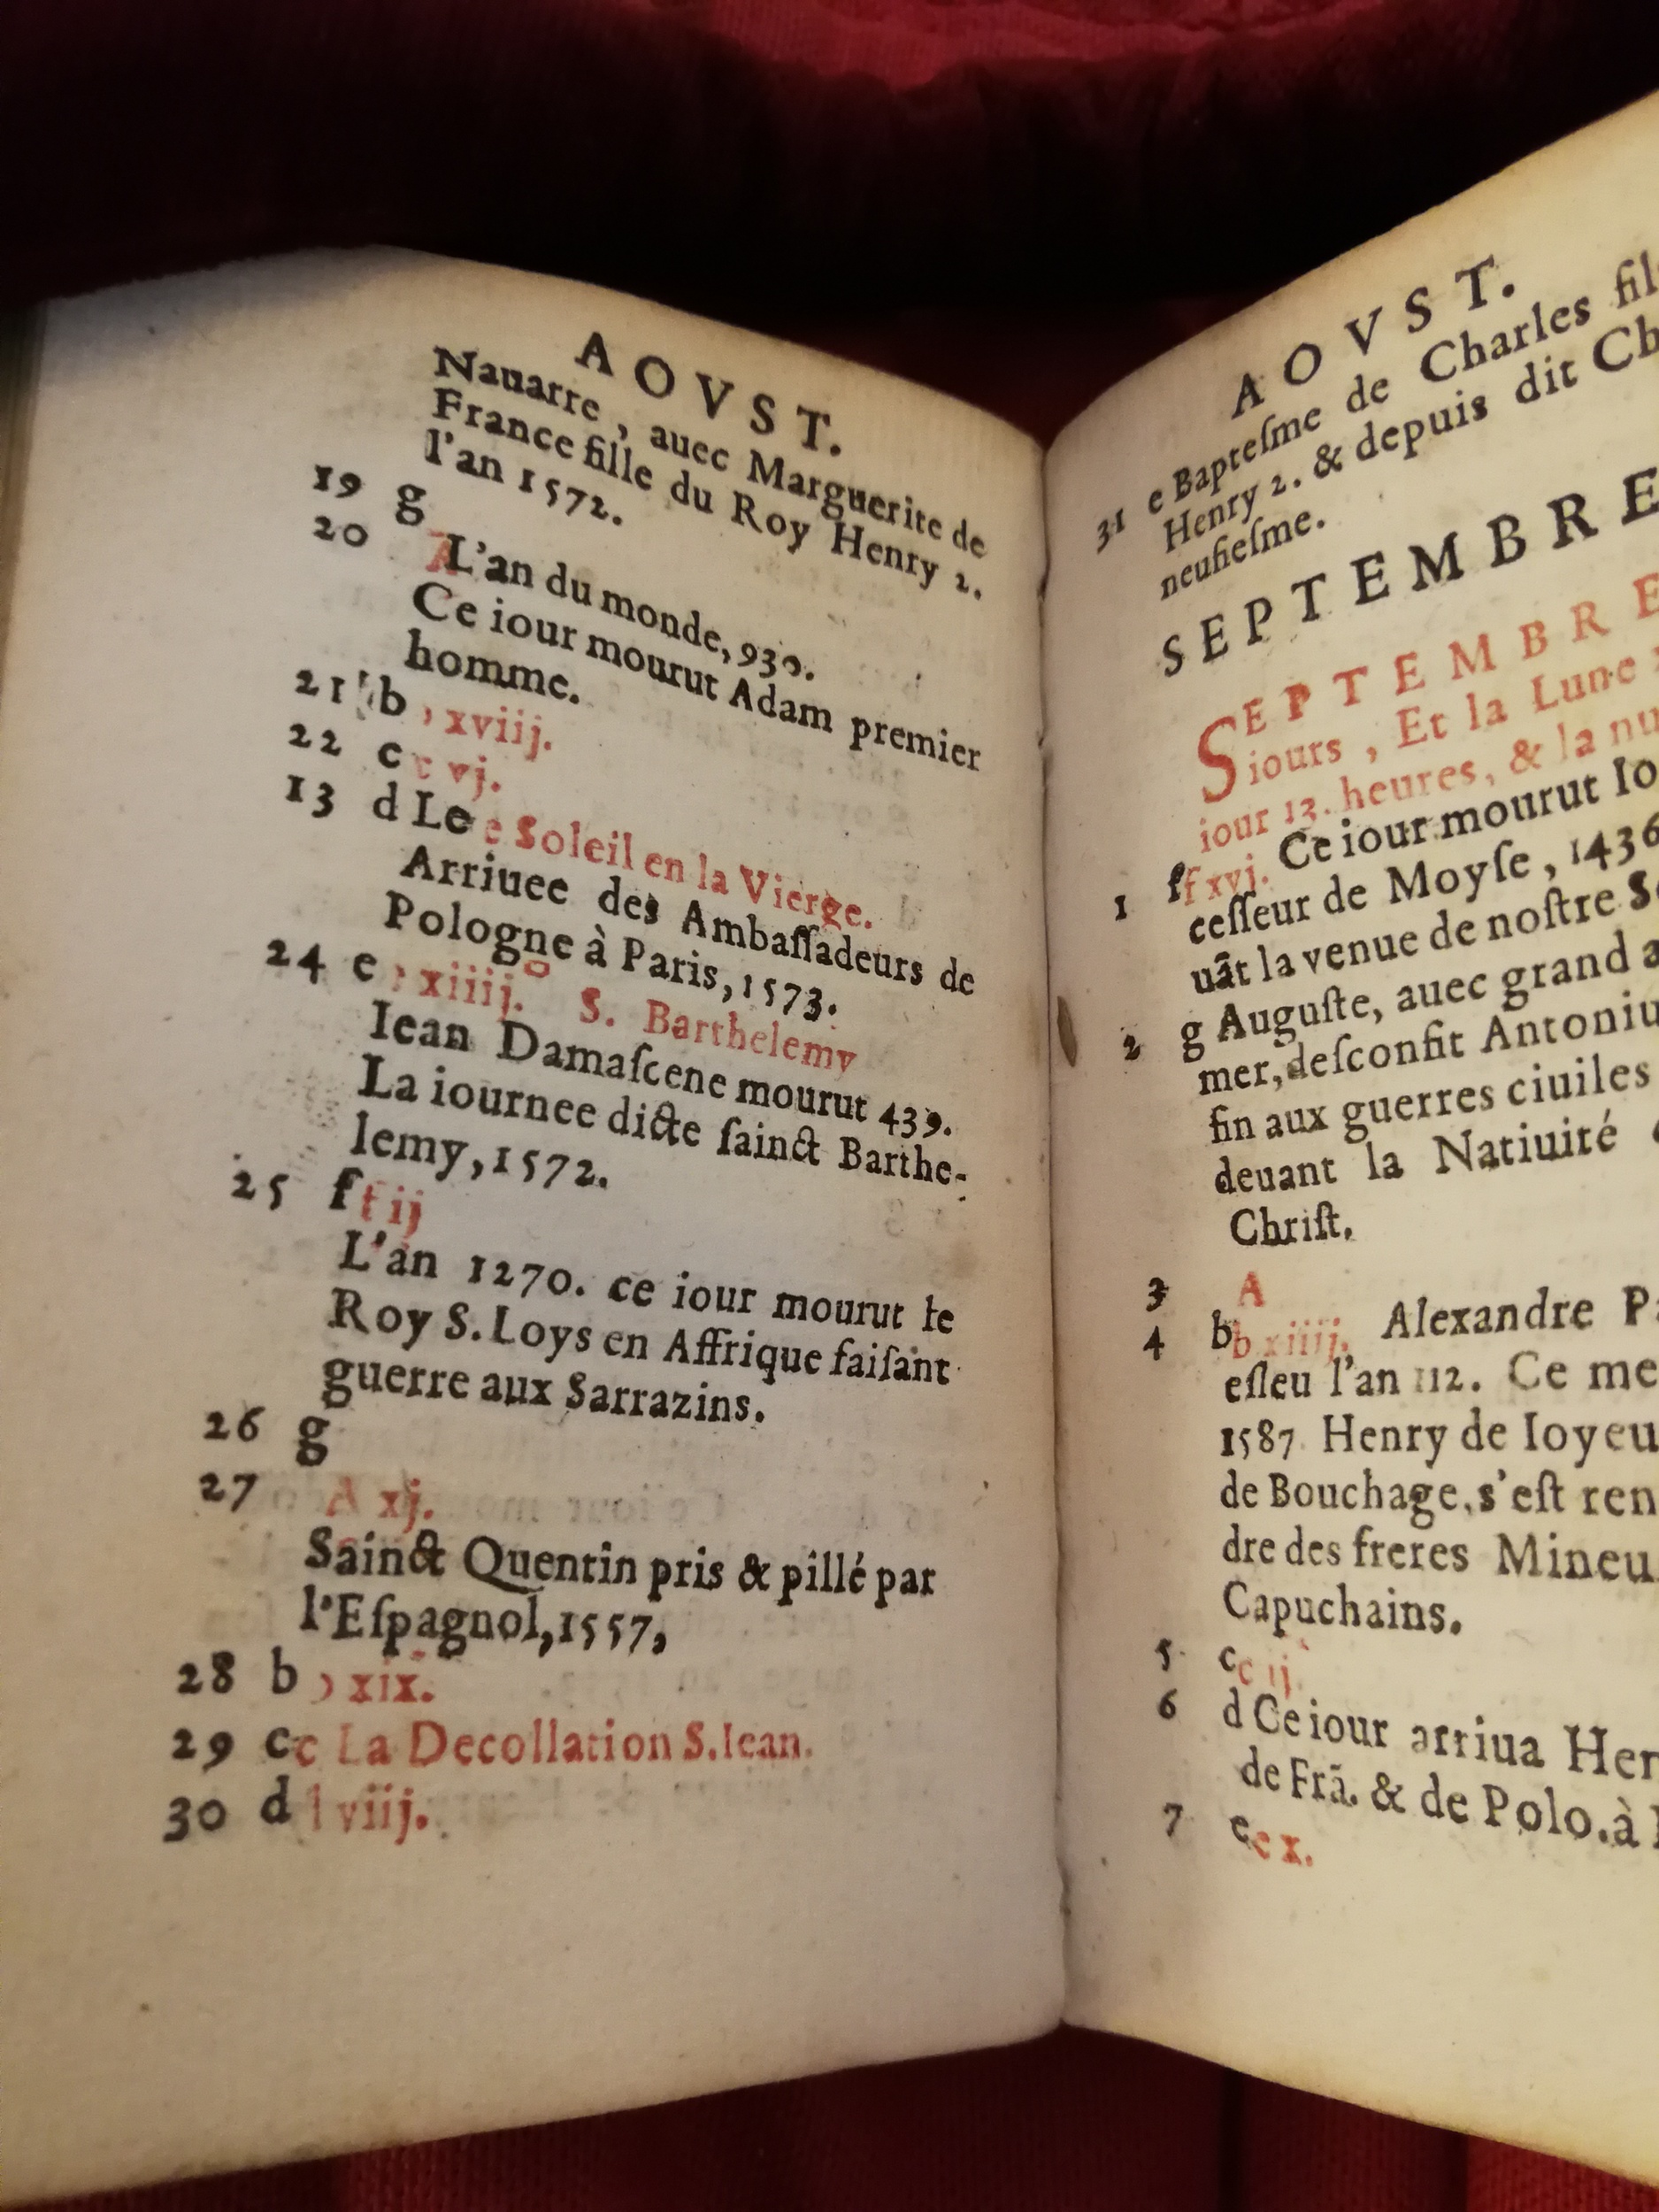 AOVST.
Nauarre, auec Marguerite de
France fille du Roy Henry 2.
l'an 1572.
19 g
20 A L'an du monde, 930.
Ce iour mourut Adam premier
homme.
21 b xviij.
22 c vj.
13 d Le Soleil en la Vierge.
Arriuee des Ambaſſadeurs de
Pologne à Paris, 1573.
24 e xiiij. S. Barthelemy
Iean Damaſcene mourut 439.
La iournee dicte ſainct Barthe-
lemy, 1572.
25 f ij
L'an 1270. ce iour mourut le
Roy S. Loys en Affrique faiſant
guerre aux Sarrazins.
26 g
27 A xj.
Sainct Quentin pris & pillé par
l'Eſpagnol, 1557,
28 b xix.
29 c La Decollation S. Iean.
30 d viij.
AOVST.
31 e Bapteſme de Charles fil
Henry 2. & depuis dit Ch
neufieſme.
SEPTEMBRE
SEPTEMBRE
iours, Et la Lune
iour 13. heures, & la nu
1 f xvj. Ce iour mourut Io
ceſſeur de Moyſe, 1436
uãt la venue de noſtre S
2 g Auguſte, auec grand a
mer, deſconfit Antoniu
fin aux guerres ciuiles
deuant la Natiuité
Chriſt.
3 A
4 b xiiij. Alexandre P
eſleu l'an 112. Ce me
1587. Henry de Ioyeu
de Bouchage, s'eſt ren
dre des freres Mineu
Capuchains.
5 c ij.
6 d Ce iour arriua Hen
de Frã. & de Polo. à
7 e x.